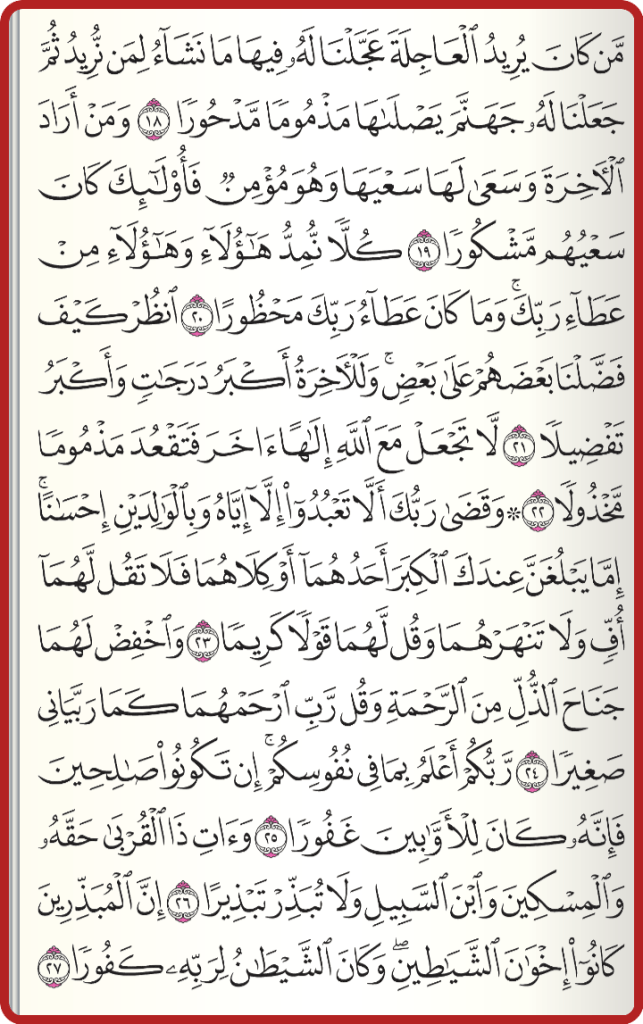 مَّن كَانَ يُرِيدُ ٱلْعَاجِلَةَ عَجَّلْنَا لَهُۥ فِيهَا مَا نَشَآءُ لِمَن نُّرِيدُ ثُمَّ
جَعَلْنَا لَهُۥ جَهَنَّمَ يَصْلَىٰهَا مَذْمُومًا مَّدْحُورًا ١٨ وَمَنْ أَرَادَ
ٱلْأَخِرَةَ وَسَعَىٰ لَهَا سَعْيَهَا وَهُوَ مُؤْمِنٌ فَأُو۟لَـٰٓئِكَ كَانَ
سَعْيُهُم مَّشْكُورًا ١٩ كُلًّا نُّمِدُّ هَـٰٓؤُلَآءِ وَهَـٰٓؤُلَآءِ مِنْ
عَطَآءِ رَبِّكَ ۚ وَمَا كَانَ عَطَآءُ رَبِّكَ مَحْظُورًا ٢٠ ٱنظُرْ كَيْفَ
فَضَّلْنَا بَعْضَهُمْ عَلَىٰ بَعْضٍ ۚ وَلَلْأَخِرَةُ أَكْبَرُ دَرَجَـٰتٍ وَأَكْبَرُ
تَفْضِيلًا ٢١ لَّا تَجْعَلْ مَعَ ٱللَّهِ إِلَـٰهًا ءَاخَرَ فَتَقْعُدَ مَذْمُومًا
مَّخْذُولًا ٢٢ ۞ وَقَضَىٰ رَبُّكَ أَلَّا تَعْبُدُوٓا۟ إِلَّآ إِيَّاهُ وَبِٱلْوَٰلِدَيْنِ إِحْسَـٰنًا ۚ
إِمَّا يَبْلُغَنَّ عِندَكَ ٱلْكِبَرَ أَحَدُهُمَآ أَوْ كِلَاهُمَا فَلَا تَقُل لَّهُمَآ
أُفٍّ وَلَا تَنْهَرْهُمَا وَقُل لَّهُمَا قَوْلًا كَرِيمًا ٢٣ وَٱخْفِضْ لَهُمَا
جَنَاحَ ٱلذُّلِّ مِنَ ٱلرَّحْمَةِ وَقُل رَّبِّ ٱرْحَمْهُمَا كَمَا رَبَّيَانِى
صَغِيرًا ٢٤ رَّبُّكُمْ أَعْلَمُ بِمَا فِى نُفُوسِكُمْ ۚ إِن تَكُونُوا۟ صَـٰلِحِينَ
فَإِنَّهُۥ كَانَ لِلْأَوَّٰبِينَ غَفُورًا ٢٥ وَءَاتِ ذَا ٱلْقُرْبَىٰ حَقَّهُۥ
وَٱلْمِسْكِينَ وَٱبْنَ ٱلسَّبِيلِ وَلَا تُبَذِّرْ تَبْذِيرًا ٢٦ إِنَّ ٱلْمُبَذِّرِينَ
كَانُوٓا۟ إِخْوَٰنَ ٱلشَّيَـٰطِينِ ۖ وَكَانَ ٱلشَّيْطَـٰنُ لِرَبِّهِۦ كَفُورًا ٢٧